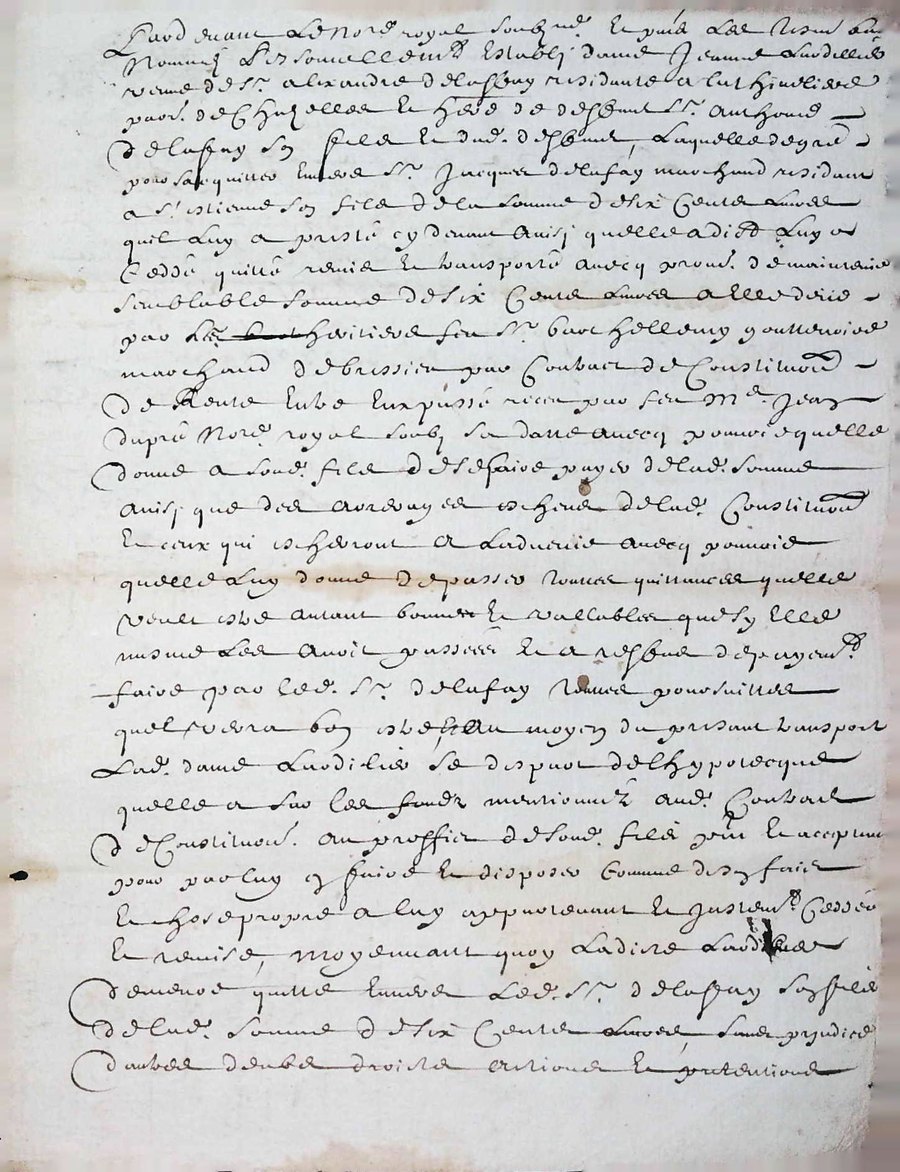 Pardevant le no.re royal soubz.né et p.nts les tesm. bas
nommés personnellem.t establi dame Jeanne Lardillier
veuve de s.r alexandre delafay residante a
parr. de Chazelles et here de deffunt s.r anthoine
delafay son fils et dud. deffunt, laquelle de gré
pour sacquitter envers s.r Jacques delafay marchand residant
a s.t estienne son fils de la somme de six Cents livres
quil luy a presté cy devant ainsi quelle a dict luy a
Ceddé quitté remis et transporté avecq prom. de maintenir
semblable somme de six Cents livres a elle deue
par les heritiers feu s.r barthellemy gouttenoire
marchand de bussiere par Contract de Constitution
de Rente entre eux passé receu par feu M.e Jean
dupré No.re royal soubz sa datte avecq pouvoir quelle
donne a sond. fils de se faire payer de lad. somme
ainsi que des arrerages escheus de lad. Constitution
et ceux qui escherront a ladvenir avecq pouvoir
quelle luy donne de passer toutes quittances quelle
veult estre autant bonnes et vallables que sy elle
mesme les avoit passées et a reffus de payem.t
faire par led. s.r delafay toutes poursuittes
quel verra bon estre, et au moyen du presant transport
Lad. dame Lardilier se depart de lhypotecque
quelle a sur les fondz mentionnéz aud. Contract
de Constitution. au proffict de sond. fils p.nt et acceptant
pour par luy en faire et disposer Comme de son faict
et chose propre a luy appartenant et justem.t Ceddée
et remise, moyennant quoy ladicte Lardilier
demeure quitte envers led. s.r delafay son fils
de lad. somme de six Cents livres, sans prejudice
dautres deubs droicts actions et pretentions